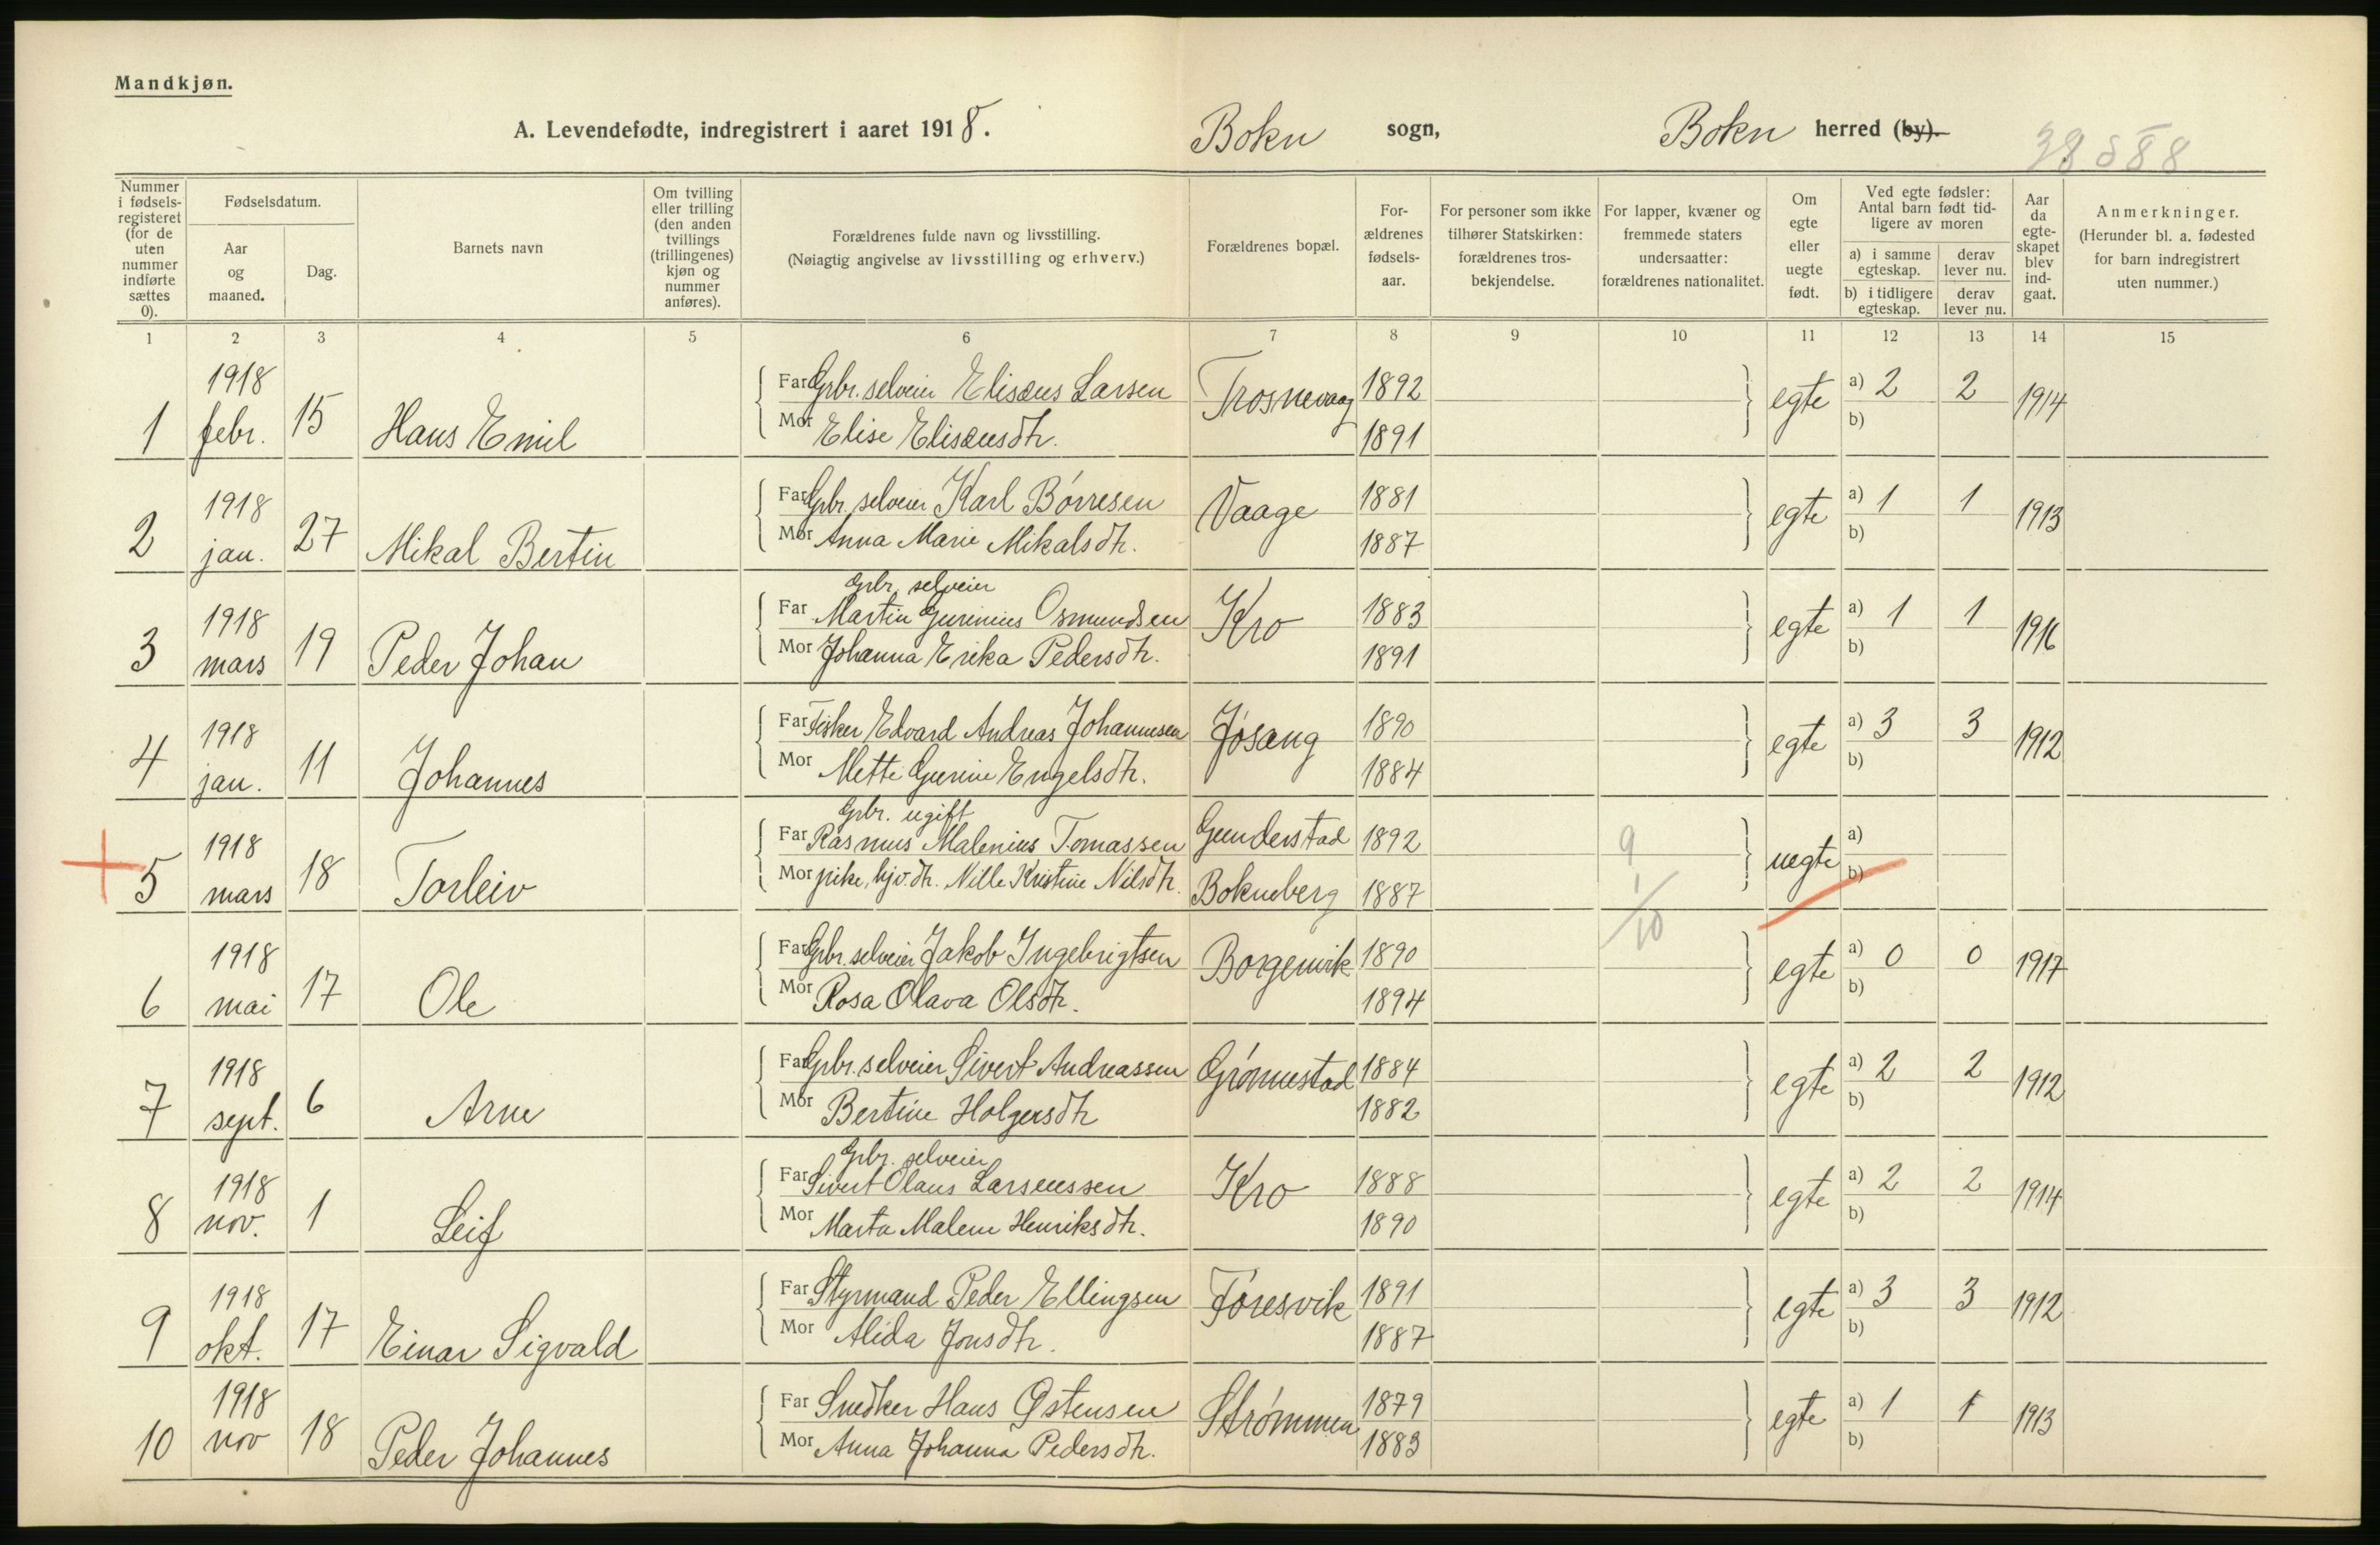 Mandkjøn.
A. Levendefødte, indregistrert i aaret 1918. Bokn sogn, Bokn herred (by).
Nummer i fødsels- registeret (for de uten nummer indførte sættes 0).
Fødselsdatum.
Aar og maaned.
Dag.
Barnets navn
Om tvilling eller trilling (den anden tvillings (trillingenes) kjøn og nummer anføres).
Forældrenes fulde navn og livsstilling.
(Nøiagtig angivelse av livsstilling og erhverv.)
Forældrenes bopæl.
For- ældrenes fødsels- aar.
For personer som ikke tilhører Statskirken: forældrenes tros- bekjendelse.
For lapper, kvæner og fremmede staters undersaatter: forældrenes nationalitet.
Om egte eller uegte født.
Ved egte fødsler: Antal barn født tid- ligere av moren
a) i samme egteskap. derav lever nu.
b) i tidligere egteskap. derav lever nu.
Aar da egte- skapet blev ind- gaat.
Anmerkninger.
(Herunder bl. a. fødested for barn indregistrert uten nummer.)
1 2 3 4 5 6 7 8 9 10 11 12 13 14 15
1 1918 febr. 15 Hans Emil
Far Grbr. selveier Elisæus Larsen Trosnevaag 1892 egte a) 2 2 1914
Mor Elise Elisæusdtr. 1891 b)
2 1918 jan. 27 Mikal Bertin
Far Grbr. selveier Karl Börresen Vaage 1881 egte a) 1 1 1913
Mor Anna Marie Mikalsdtr. 1887 b)
3 1918 mars 19 Peder Johan
Grbr. selveier
Far Martin Gurinius Osmundsen Kro 1883 egte a) 1 1 1916
Mor Johanna Erika Pedersdtr. 1891 b)
4 1918 jan. 11 Johannes
Far Fisker Edvard Andreas Johannesen Jösang 1890 egte a) 3 3 1912
Mor Mette Gurine Engelsdtr. 1884 b)
5 1918 mars 18 Torleiv
Grbr. ugift
Far Rasmus Malenius Tomassen Gunderstad 1892 9 uegte a)
Mor pike, hjv. dtr. Nille Kristine Nilsdtr. Bokneberg 1887 1/10 b)
6 1918 mai 17 Ole
Far Grbr. selveier Jakob Ingebrigtsen Borgenvik 1890 egte a) 0 0 1917
Mor Rosa Olava Olsdtr. 1894 b)
7 1918 sept. 6 Arne
Far Grbr. selveier Sivert Andreassen Grönnestad 1884 egte a) 2 2 1912
Mor Bertine Holgersdtr 1882 b)
8 1918 nov. 1 Leif
Grbr. selveier
Far Sivert Olaus Larseussen Kro 1888 egte a) 2 2 1914
Mor Marta Malene Henriksdtr. 1890 b)
9 1918 okt. 17 Einar Sigvald
Far Styrmand Peder Ellingsen Föresvik 1891 egte a) 3 3 1912
Mor Alida Jonsdtr. 1887 b)
10 1918 nov 18 Peder Johannes
Far Snedker Hans Østensen Strömmen 1879 egte a) 1 1 1913
Mor Anna Johanna Pedersdtr. 1883 b)